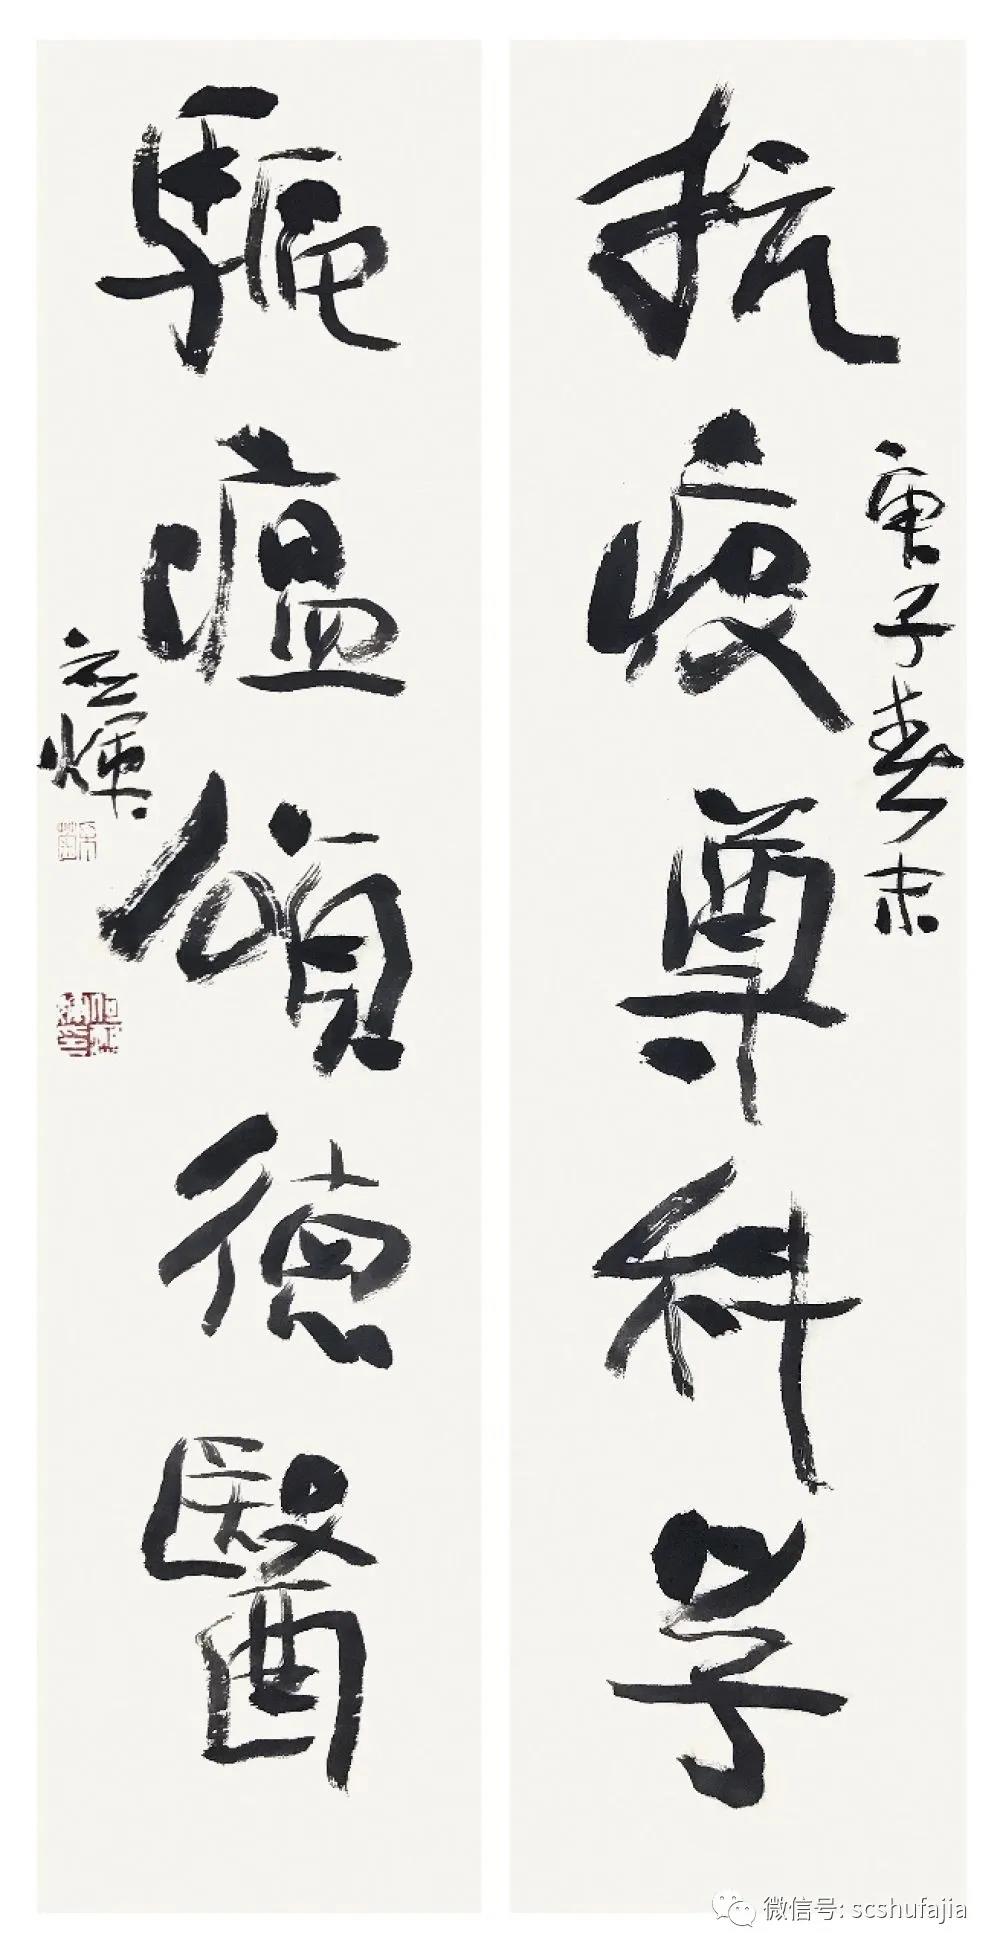 抗疫尊科学
庚子春末
驅瘟頌德醫
应輝
微信号: scshufajia